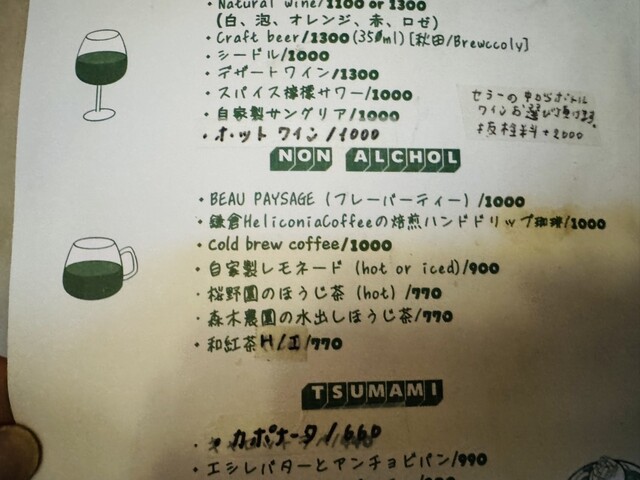 ・Natural wine/1100 or 1300
(白、泡、オレンジ、赤、ロゼ)
・Craft beer/1300(350ml)[秋田/Brewccoly]
・シードル/1000
・デザートワイン/1300
・スパイス檸檬サワー/1000
・自家製サングリア/1000
・ホットワイン/1000
セラーの中からボトル
ワインお選び頂けます。
+抜栓料+2000
NON ALCHOL
・BEAU PAYSAGE (フレーバーティー)/1000
・鎌倉HeliconiaCoffeeの焙煎ハンドドリップ珈琲/1000
・Cold brew coffee/1000
・自家製レモネード (hot or iced)/900
・桜野園のほうじ茶 (hot) /770
・森木農園の水出しほうじ茶/770
・和紅茶H/I/770
TSUMAMI
・カポナータ/660
・エシレバターとアンチョビパン/990